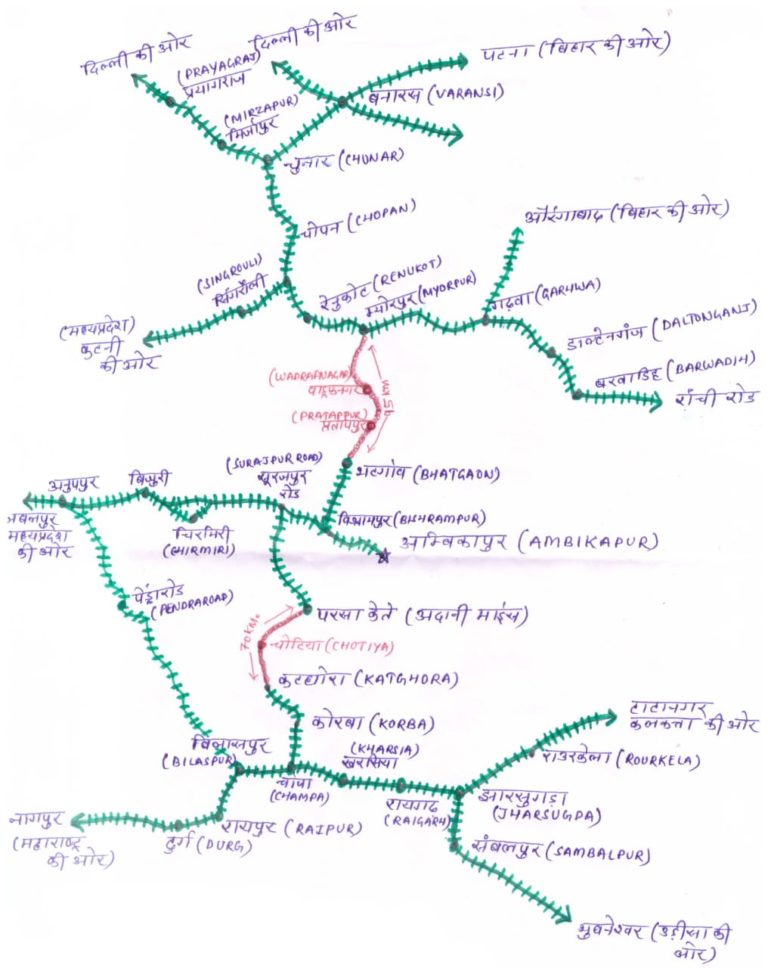 दिल्ली की ओर
दिल्ली की ओर
(PRAYAGRAJ)
प्रयागराज
पटना (बिहार की ओर)
(MIRZAPUR)
मिर्जापुर
बनारस (VARANSI)
चुनार (CHUNAR)
चोपन (CHOPAN)
औरंगाबाद (बिहार की ओर)
(SINGROULI)
सिंगरौली
रेनुकोट (RENUKOT)
म्योरपुर (MYORPUR)
गढ़वा (GARHWA)
(मध्यप्रदेश)
कटनी
की ओर
डाल्टेनगंज (DALTONGANJ)
बरवाडिह (BARWADIH)
राँची रोड
(WADRAFNAGAR)
वाड्रफनगर
(PRATAPPUR)
प्रतापपुर
भटगांव (BHATGAON)
(SURAJPUR ROAD)
सूरजपुर
रोड
अनुपपुर
बिजुरी
जबलपुर
मध्यप्रदेश
की ओर
चिरमिरी
(CHIRMIRI)
विश्रामपुर (BISHRAMPUR)
अम्बिकापुर (AMBIKAPUR)
पेंड्रारोड
(PENDRAROAD)
परसा केते (अदानी माइंस)
70KM.
चोटिया (CHOTIYA)
कटघोरा (KATGHORA)
कोरबा (KORBA)
टाटानगर
कलकत्ता की ओर
बिलासपुर
(BILASPUR)
(KHARSIA)
खरसिया
राउरकेला (ROURKELA)
चांपा
(CHAMPA)
रायगढ़
(RAIGARH)
झारसुगड़ा
(JHARSUGDA)
नागपुर
(महाराष्ट्र
की ओर)
दुर्ग (DURG)
रायपुर (RAIPUR)
संबलपुर (SAMBALPUR)
भुवनेश्वर (उड़ीसा की
ओर)